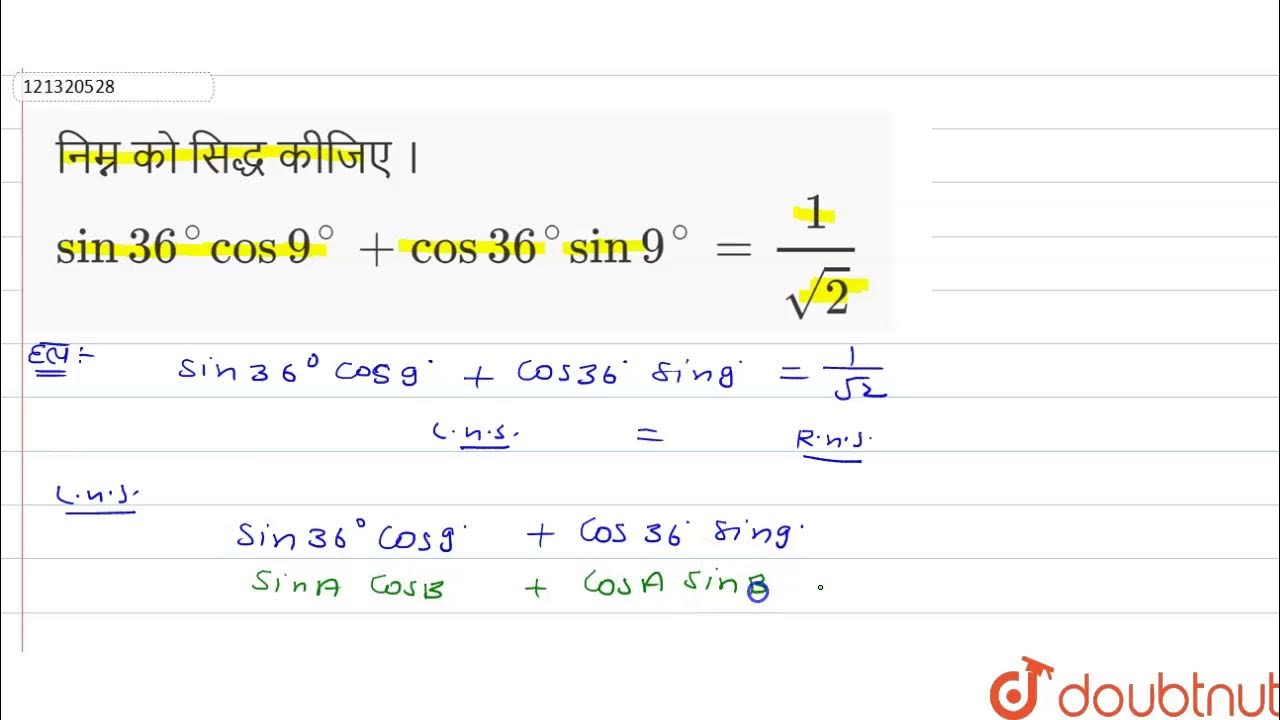 121320528
निम्न को सिद्ध कीजिए ।
sin 36° cos 9° + cos 36° sin 9° = 1/√2
हल :-
sin 36° cos 9° + cos 36° sin 9° = 1/√2
L.H.S. = R.H.S.
L.H.S.
sin 36° cos 9° + cos 36° sin 9°
sin A cos B + cos A sin B
doubtnut